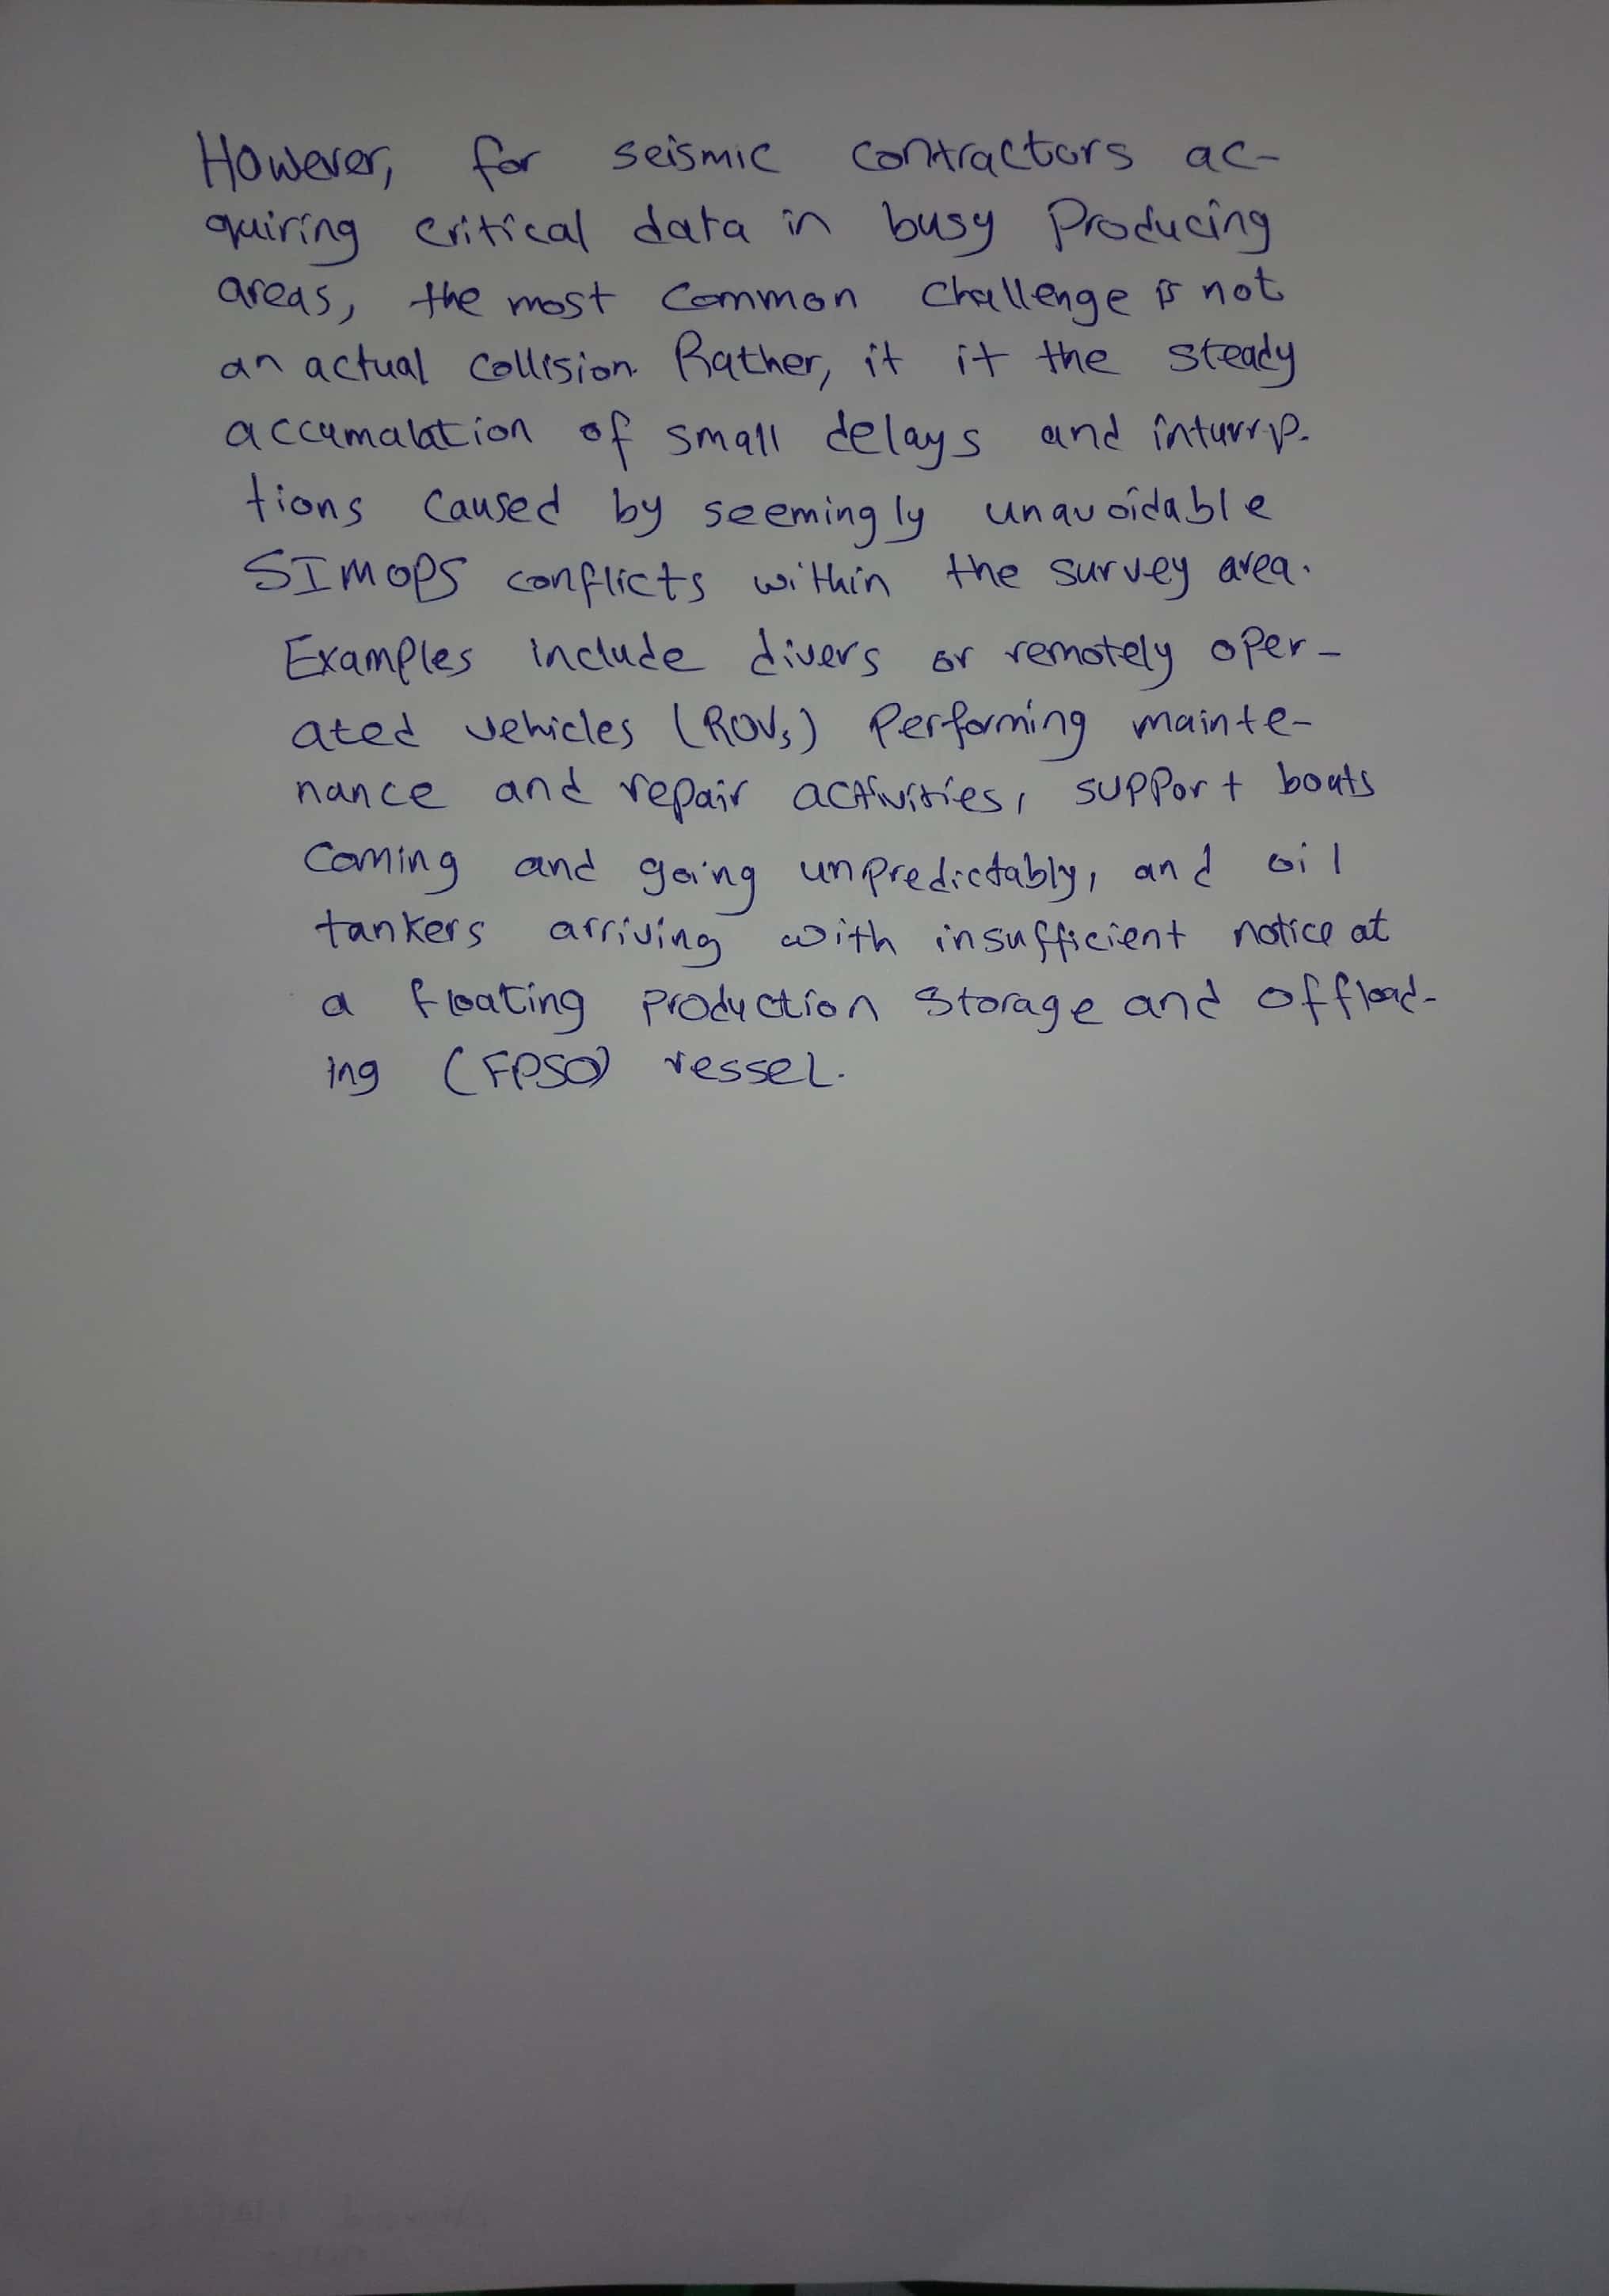 However, for seismic contractors ac-
quiring critical data in busy Producing
areas, the most common challenge is not
an actual collision. Rather, it it the steady
accumalation of small delays and inturrp-
tions caused by seemingly unavoidable
SIMOPS conflicts within the survey area.
Examples include divers or remotely oper-
ated vehicles (ROVs) Performing mainte-
nance and repair activities, support boats
coming and going unpredictably, and oil
tankers arriving with insufficient notice at
a floating production storage and offload-
ing (FPSO) vessel.